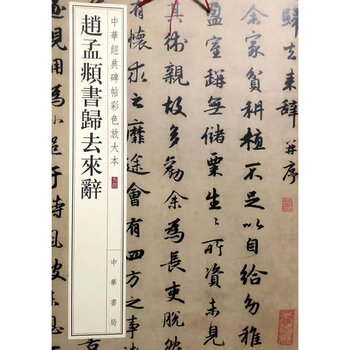 歸去來辭 并序
余家貧耕植不足以自給幼稚
盈室缾無儲粟生生所資未見
其術親故多勸余為長吏脫然
有懷求之靡途會有四方之事
用為小邑于時風波
中華經典碑帖彩色放大本
趙孟頫書歸去來辭
中華書局